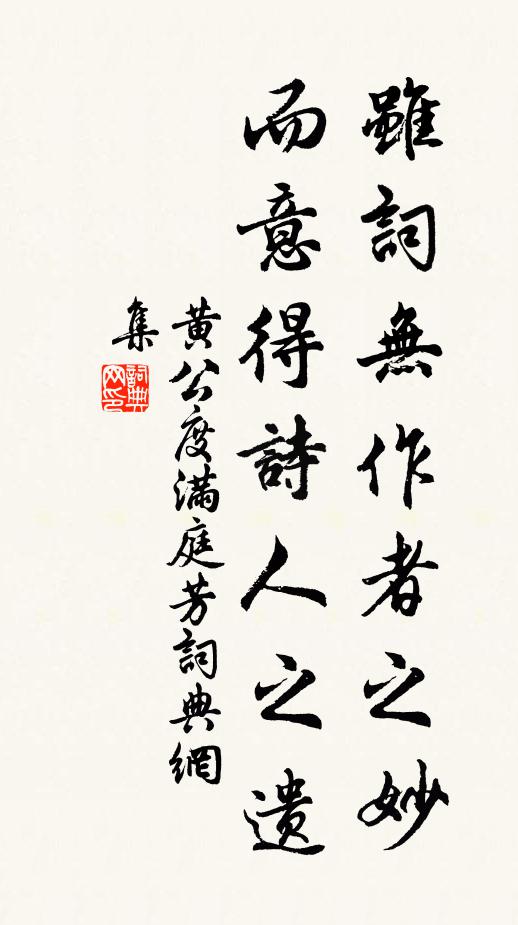 雖詞無作者之妙
而意得詩人之遺
黃公度滿庭芳詞典網
集
詞典網印